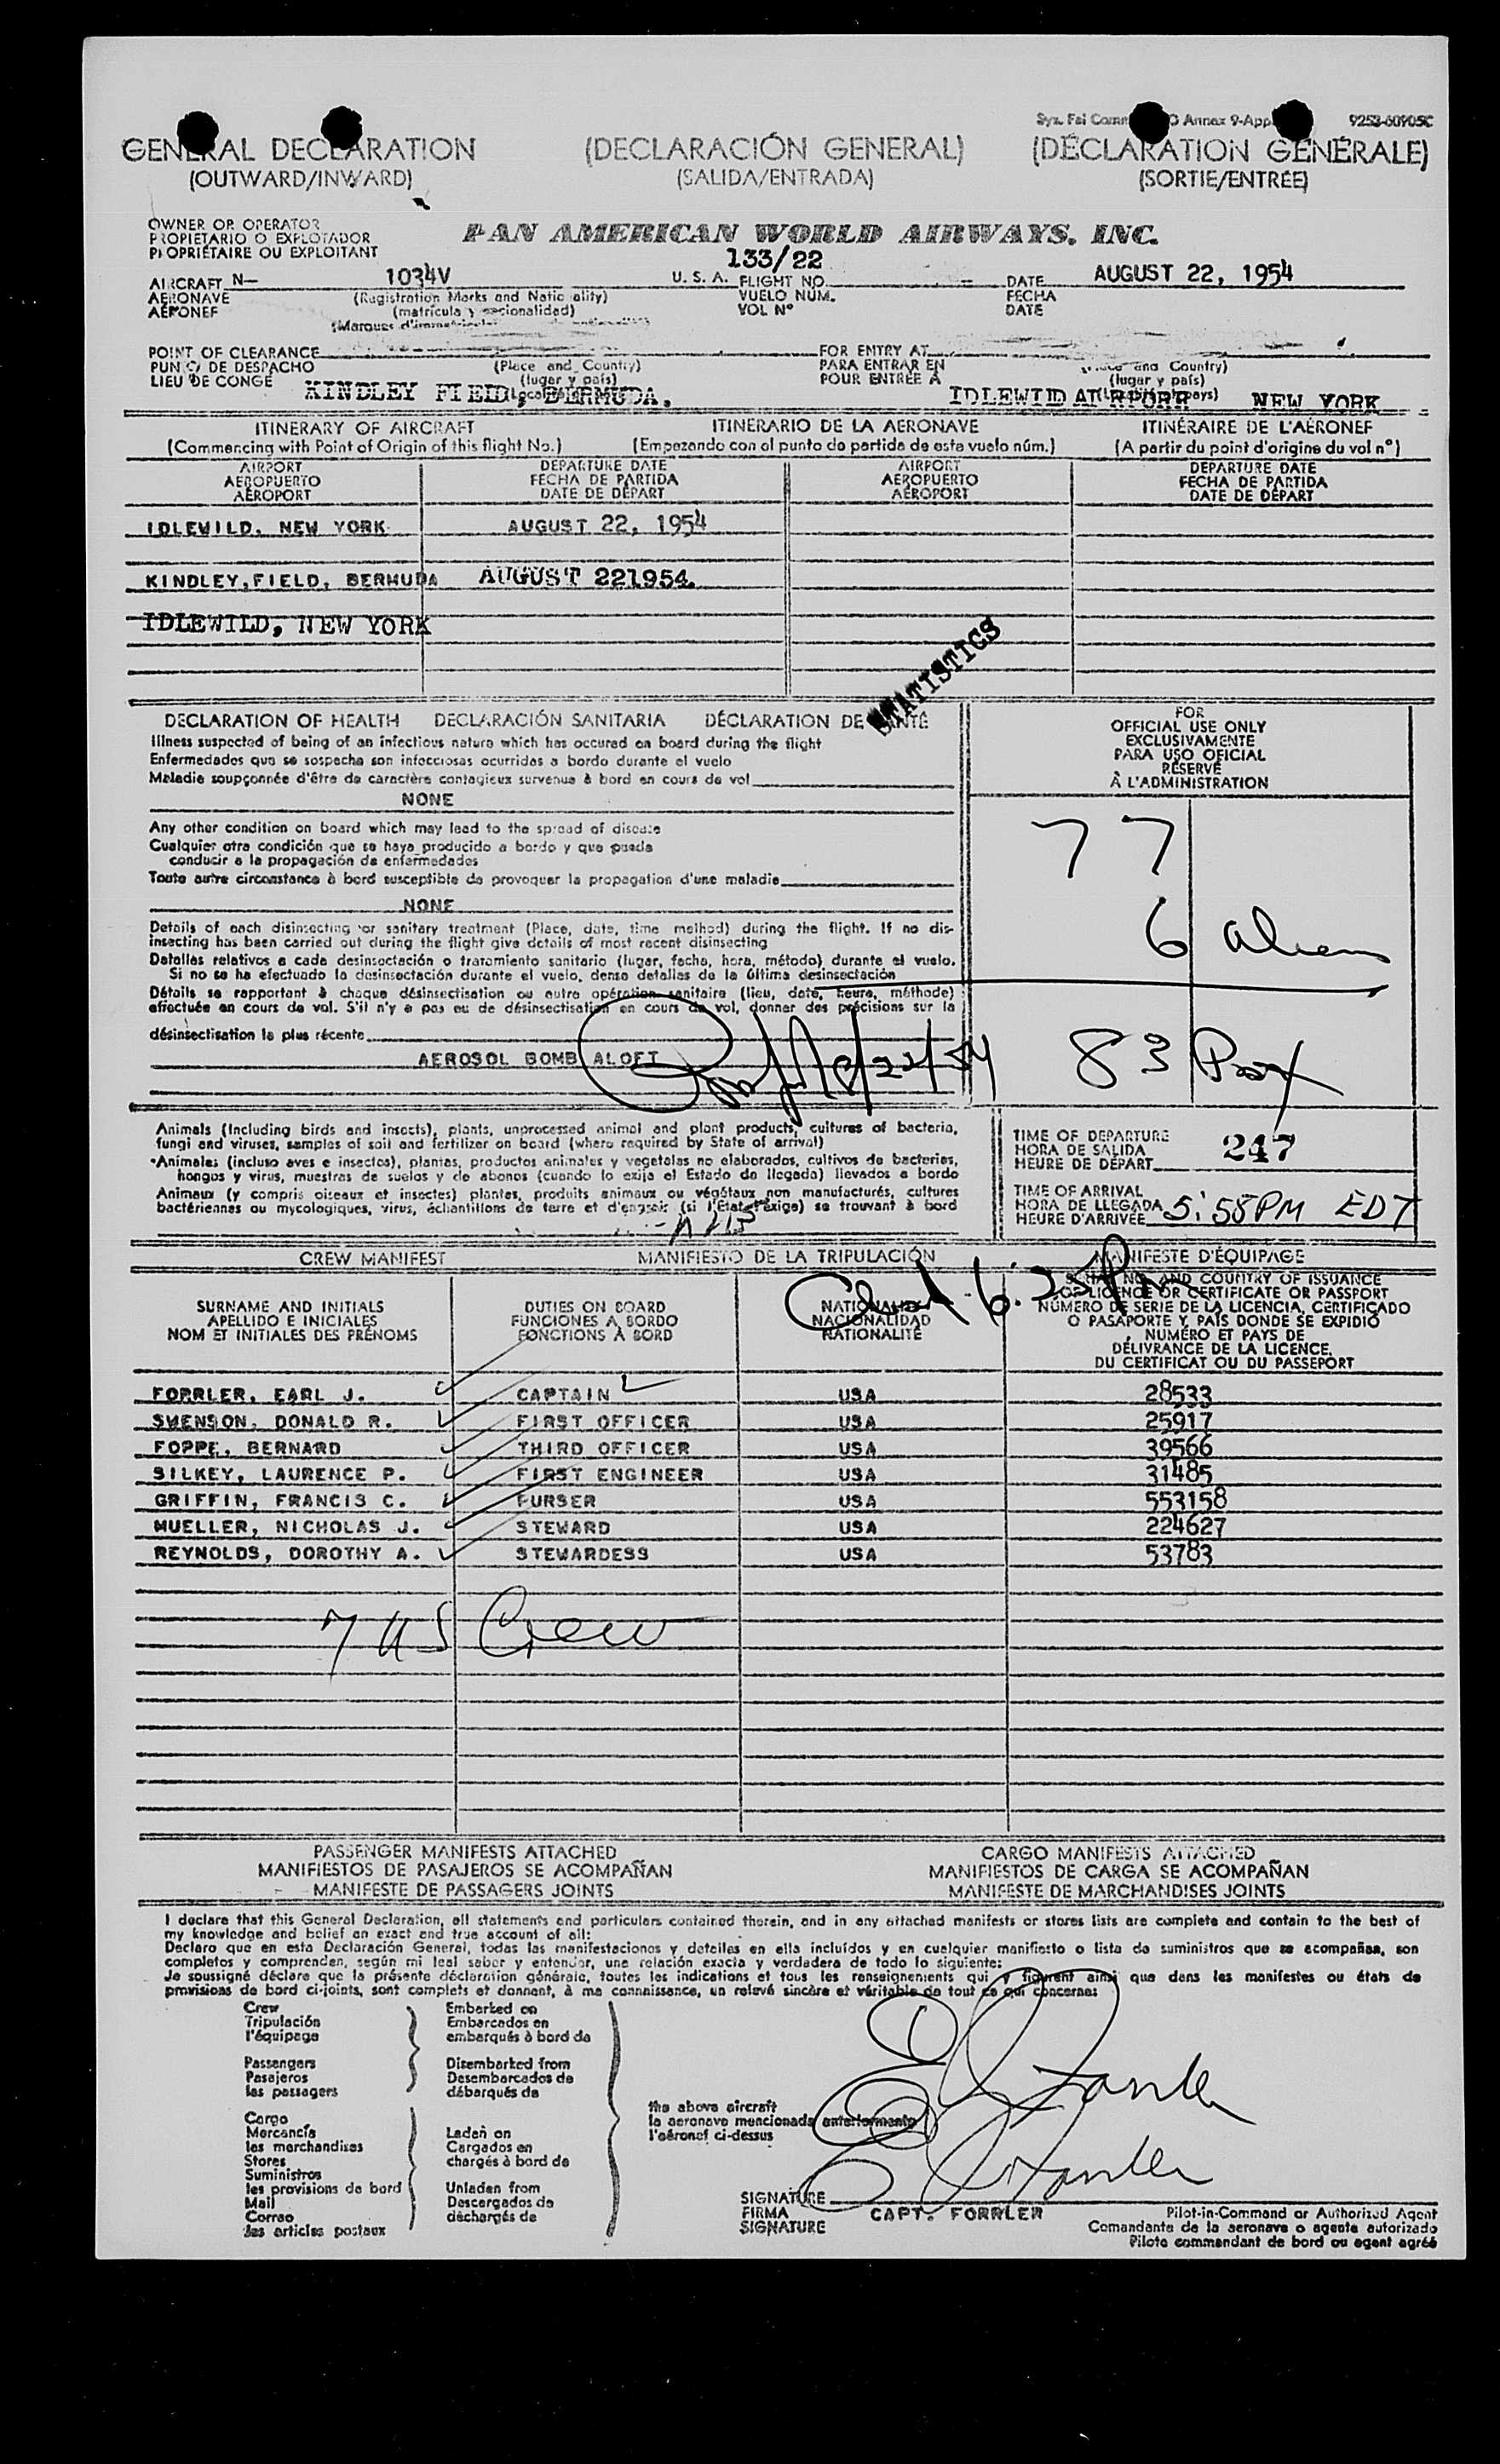 9253-60905C
GENERAL DECLARATION (DECLARACIÓN GENERAL) (DÉCLARATION GÉNÉRALE)
(OUTWARD/INWARD) (SALIDA/ENTRADA) (SORTIE/ENTRÉE)
OWNER OR OPERATOR
PROPIETARIO O EXPLOTADOR
PROPIÉTAIRE OU EXPLOITANT
PAN AMERICAN WORLD AIRWAYS, INC.
133/22
AIRCRAFT N— 1034V U. S. A. FLIGHT NO. DATE AUGUST 22, 1954
AERONAVE (Registration Marks and Nationality) VUELO NÚM. FECHA
AÉRONEF (matrícula y nacionalidad) VOL Nº DATE
POINT OF CLEARANCE FOR ENTRY AT
PUNTO DE DESPACHO (Place and Country) PARA ENTRAR EN (Place and Country)
LIEU DE CONGÉ (lugar y país) POUR ENTRÉE À (lugar y país)
KINDLEY FIELD, BERMUDA. IDLEWILD AIRPORT NEW YORK
ITINERARY OF AIRCRAFT ITINERARIO DE LA AERONAVE ITINÉRAIRE DE L'AÉRONEF
(Commencing with Point of Origin of this flight No.) (Empezando con el punto de partida de este vuelo núm.) (A partir du point d'origine du vol nº)
AIRPORT DEPARTURE DATE AIRPORT DEPARTURE DATE
AEROPUERTO FECHA DE PARTIDA AEROPUERTO FECHA DE PARTIDA
AÉROPORT DATE DE DÉPART AÉROPORT DATE DE DÉPART
IDLEWILD, NEW YORK AUGUST 22, 1954
KINDLEY,FIELD, BERMUDA AUGUST 221954.
IDLEWILD, NEW YORK
STATISTICS
DECLARATION OF HEALTH DECLARACIÓN SANITARIA DÉCLARATION DE SANTÉ
Illness suspected of being of an infectious nature which has occured on board during the flight
Enfermedades que se sospecha son infecciosas ocurridas a bordo durante el vuelo
Maladie soupçonnée d'être de caractère contagieux survenue à bord en cours de vol
NONE
Any other condition on board which may lead to the spread of disease
Cualquier otra condición que se haya producido a bordo y que pueda
conducir a la propagación de enfermedades
Toute autre circonstance à bord susceptible de provoquer la propagation d'une maladie
NONE
Details of each disinsecting or sanitary treatment (Place, date, time method) during the flight. If no dis-
insecting has been carried out during the flight give details of most recent disinsecting
Detalles relativos a cada desinsectación o tratamiento sanitario (lugar, fecha, hora, método) durante el vuelo.
Si no se ha efectuado la desinsectación durante el vuelo, dense detalles de la última desinsectación
Détails se rapportant à chaque désinsectisation ou autre opération sanitaire (lieu, date, heure, méthode)
effectuée en cours de vol. S'il n'y a pas eu de désinsectisation en cours de vol, donner des précisions sur la
désinsectisation la plus récente
AEROSOL BOMB ALOFT
8/22/54
FOR
OFFICIAL USE ONLY
EXCLUSIVAMENTE
PARA USO OFICIAL
RÉSERVÉ
À L'ADMINISTRATION
77
6 aliens
83 Pax
Animals (Including birds and insects), plants, unprocessed animal and plant products, cultures of bacteria,
fungi and viruses, samples of soil and fertilizer on board (where required by State of arrival)
Animales (incluso aves e insectos), plantas, productos animales y vegetales no elaborados, cultivos de bacterias,
hongos y virus, muestras de suelos y de abonos (cuando lo exija el Estado de llegada) llevados a bordo
Animaux (y compris oiseaux et insectes) plantes, produits animaux ou végétaux non manufacturés, cultures
bactériennes ou mycologiques, virus, échantillons de terre et d'engrais (si l'État l'exige) se trouvant à bord
TIME OF DEPARTURE
HORA DE SALIDA 247
HEURE DE DÉPART
TIME OF ARRIVAL
HORA DE LLEGADA 5:55PM EDT
HEURE D'ARRIVÉE
CREW MANIFEST MANIFIESTO DE LA TRIPULACIÓN MANIFESTE D'ÉQUIPAGE
6:25 PM
SURNAME AND INITIALS
APELLIDO E INICIALES
NOM ET INITIALES DES PRÉNOMS
DUTIES ON BOARD
FUNCIONES A BORDO
FONCTIONS À BORD
NATIONALITY
NACIONALIDAD
NATIONALITÉ
SERIAL NO. AND COUNTRY OF ISSUANCE
OF LICENCE OR CERTIFICATE OR PASSPORT
NÚMERO DE SERIE DE LA LICENCIA, CERTIFICADO
O PASAPORTE Y PAÍS DONDE SE EXPIDIÓ
NUMÉRO ET PAYS DE
DÉLIVRANCE DE LA LICENCE,
DU CERTIFICAT OU DU PASSEPORT
FORRLER, EARL J. CAPTAIN USA 28533
SWENSON, DONALD R. FIRST OFFICER USA 25917
FOPPE, BERNARD THIRD OFFICER USA 39566
SILKEY, LAURENCE P. FIRST ENGINEER USA 31485
GRIFFIN, FRANCIS C. PURSER USA 553158
MUELLER, NICHOLAS J. STEWARD USA 224627
REYNOLDS, DOROTHY A. STEWARDESS USA 53783
7 US Crew
PASSENGER MANIFESTS ATTACHED CARGO MANIFESTS ATTACHED
MANIFIESTOS DE PASAJEROS SE ACOMPAÑAN MANIFIESTOS DE CARGA SE ACOMPAÑAN
MANIFESTE DE PASSAGERS JOINTS MANIFESTE DE MARCHANDISES JOINTS
I declare that this General Declaration, all statements and particulars contained therein, and in any attached manifests or stores lists are complete and contain to the best of
my knowledge and belief an exact and true account of all:
Declaro que en esta Declaración General, todas las manifestaciones y detalles en ella incluídos y en cualquier manifiesto o lista de suministros que se acompañan, son
completos y comprenden, según mi leal saber y entender, una relación exacta y verdadera de todo lo siguiente:
Je soussigné déclare que la présente déclaration générale, toutes les indications et tous les renseignements qui y figurent ainsi que dans les manifestes ou états de
provisions de bord ci-joints, sont complets et donnent, à ma connaissance, un relevé sincère et véritable de tout ce qui concerne:
Crew Embarked on
Tripulación Embarcados en
l'équipage embarqués à bord de
Passengers Disembarked from
Pasajeros Desembarcados de
les passagers débarqués de
Cargo
Mercancía Laden on
les marchandises Cargados en
Stores chargés à bord de
Suministros
les provisions de bord Unladen from
Mail Descargados de
Correo déchargés de
les articles postaux
the above aircraft
la aeronave mencionada anteriormente
l'aéronef ci-dessus
SIGNATURE
FIRMA CAPT. FORRLER Pilot-in-Command or Authorized Agent
SIGNATURE Comandante de la aeronave o agente autorizado
Pilote commandant de bord ou agent agréé